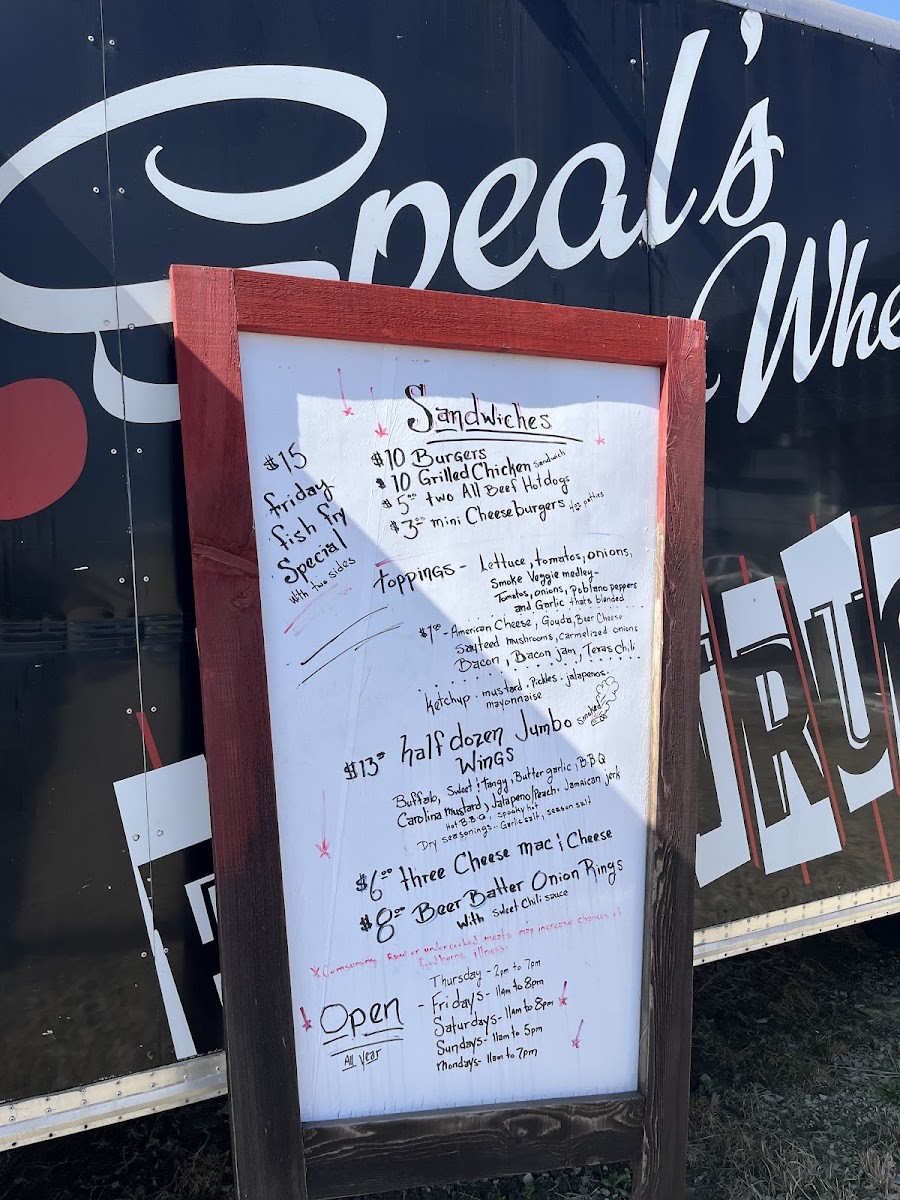 Speal's
Whe
TRUC
Sandwiches
$10 Burgers
$10 Grilled Chicken Sandwich
$5.00 two All Beef Hotdogs
$3.00 mini Cheeseburgers patties
$15
friday
fish fry
Special
with two sides
toppings - Lettuce, tomatos, onions,
Smoke Veggie medley -
Tomatos, onions, poblano peppers
and Garlic thats blended
$1.00 - American Cheese, Gouda, Beer Cheese
Sauteed mushrooms, carmelized onions
Bacon, Bacon jam, Texas Chili
Ketchup - mustard - Pickles - jalapenos -
mayonnaise
$13.00 half dozen Jumbo Smoked
Wings
Buffalo, Sweet & tangy, Butter garlic, B.B.Q
Carolina mustard, Jalapeno/Peach, Jamaican jerk
Hot B.B.Q, Spooky hot
Dry seasonings - Garlic salt, season salt
$6.00 three Cheese mac & Cheese
$8.00 Beer Batter Onion Rings
with sweet chili sauce
*Comsuming Raw or undercooked meats may increase chances of
foodborne illness.
Open
All year
Thursday - 2pm to 7pm
- Fridays - 11am to 8pm
Saturdays - 11am to 8pm
Sundays - 11am to 5pm
mondays - 11am to 7pm